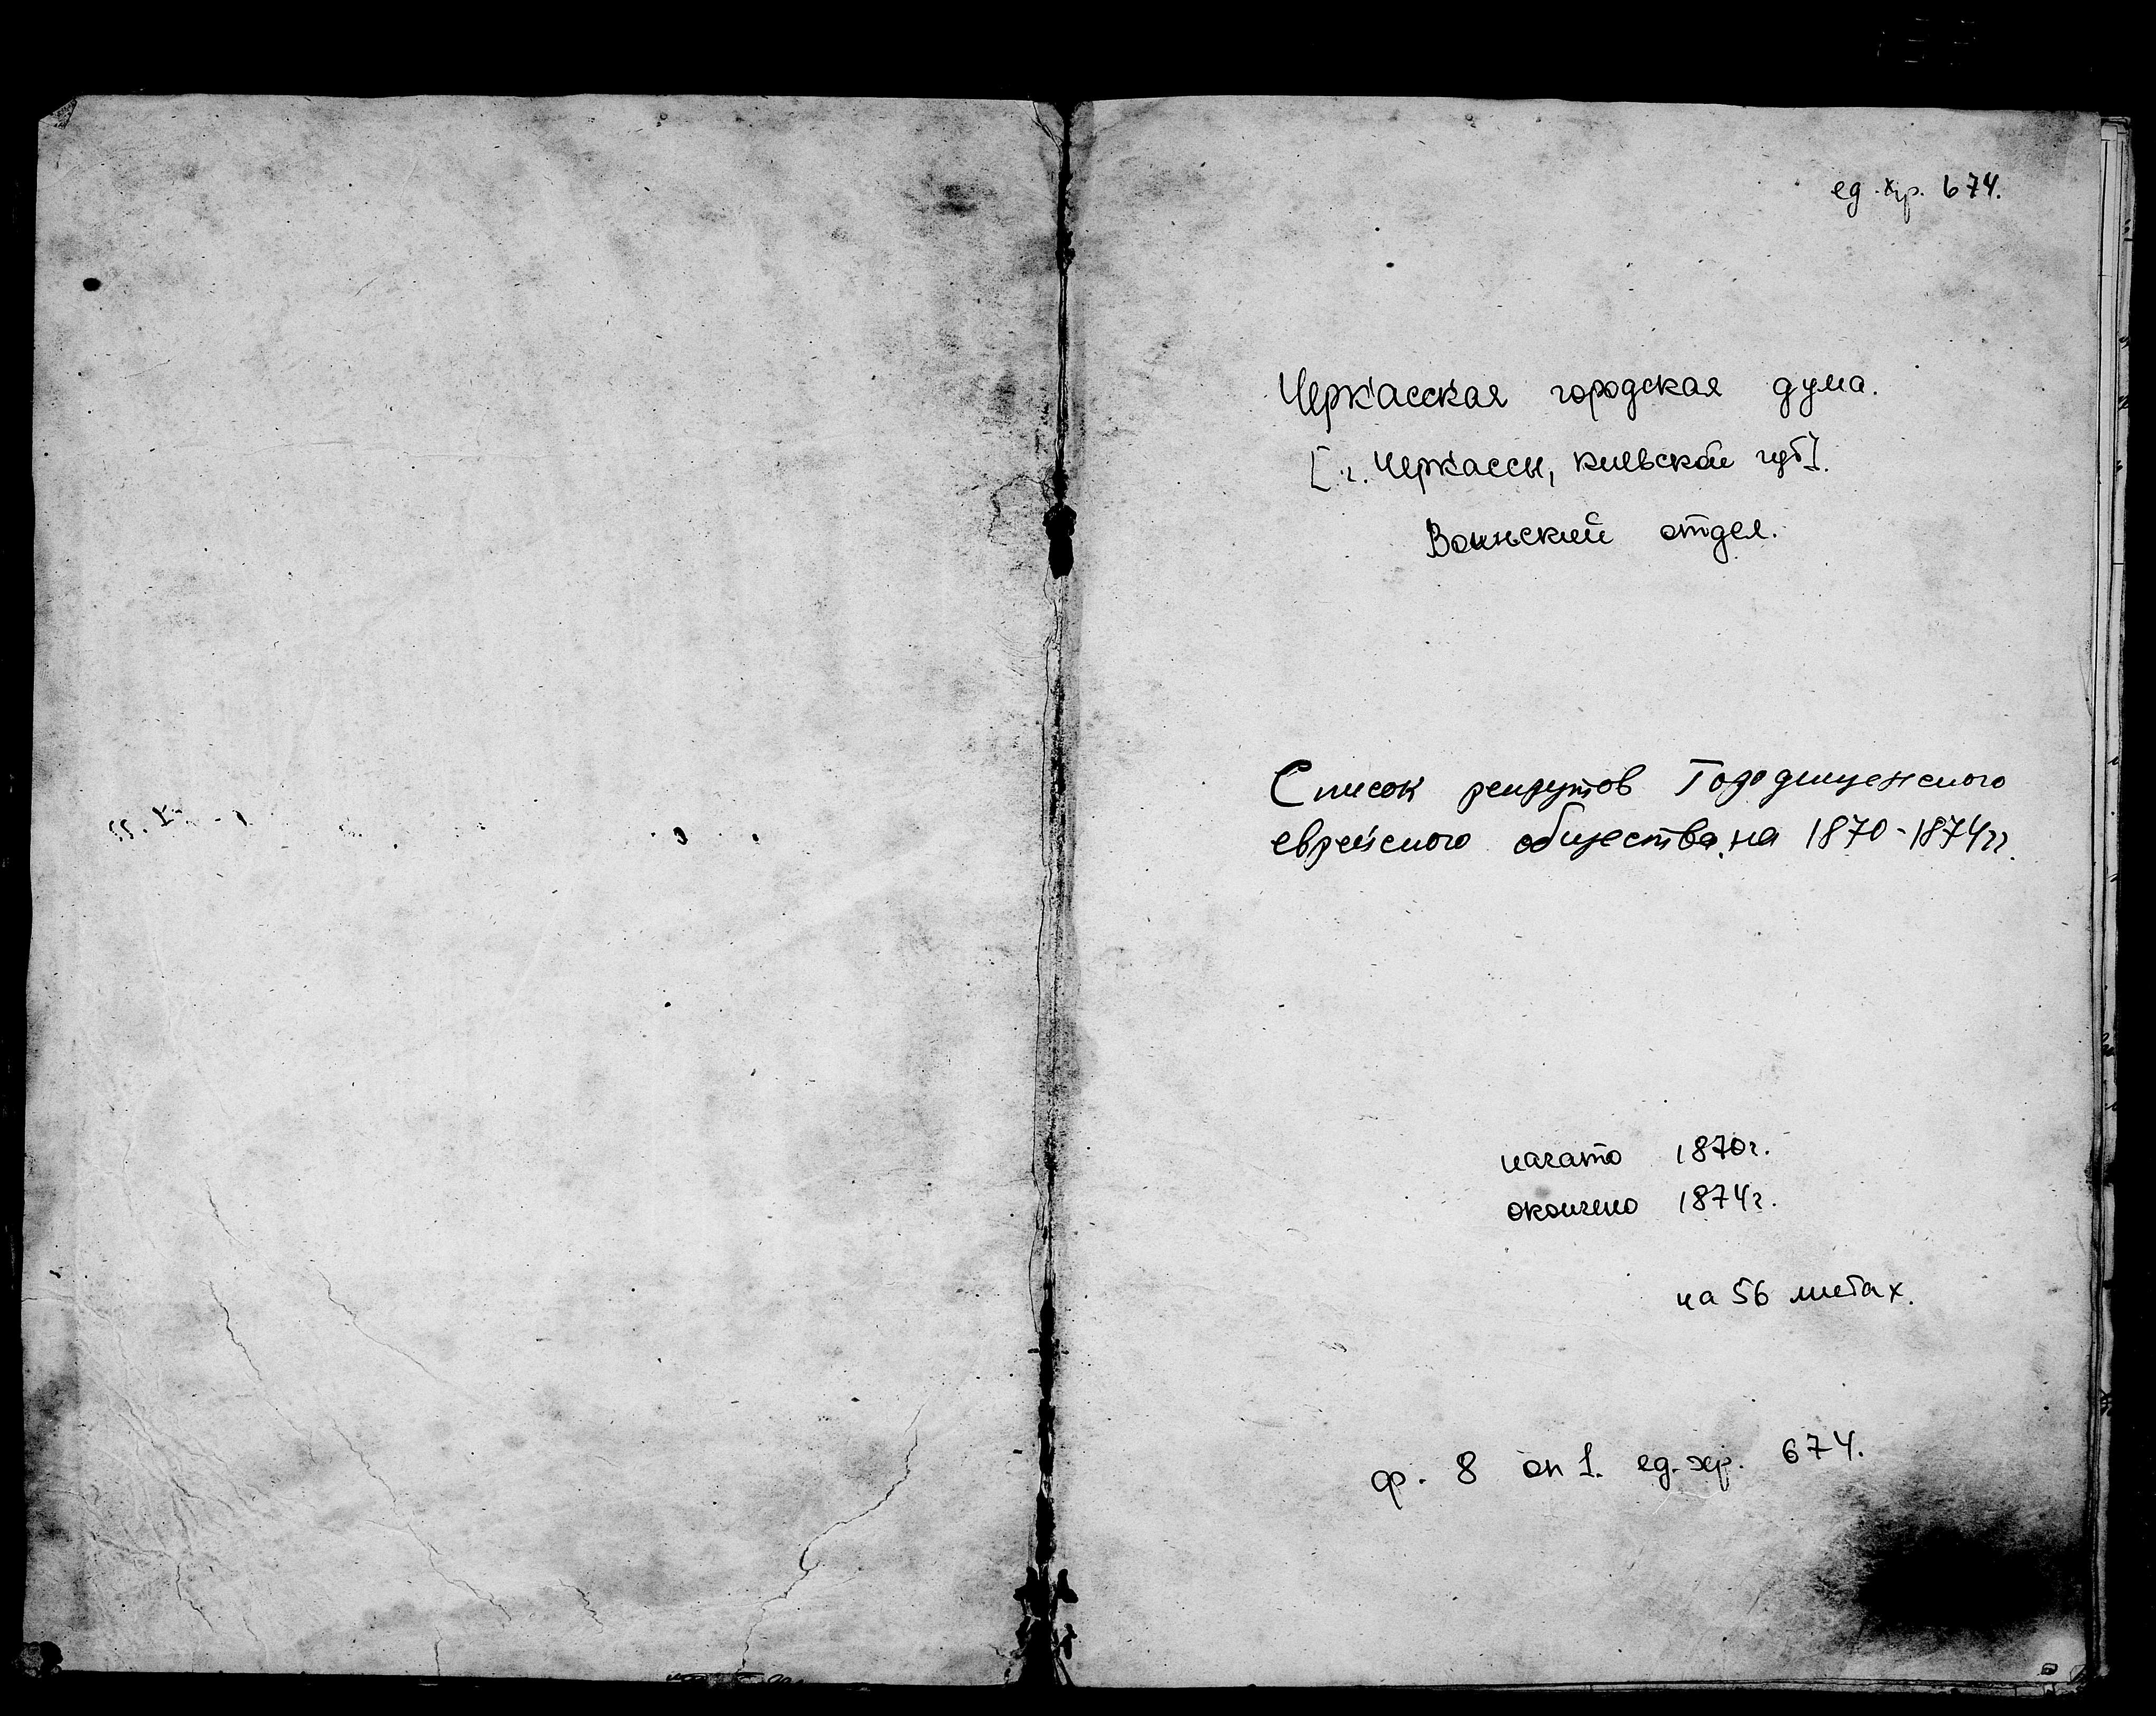 ед. хр. 674.
Черкасская городская дума.
[г. Черкассы, киевской губ].
Воинский отдел.
Список рекрутов Городищенского
еврейского общества на 1870-1874гг.
начато 1870г.
окончено 1874г.
на 56 листах.
ф. 8 оп 1. ед. хр. 674.